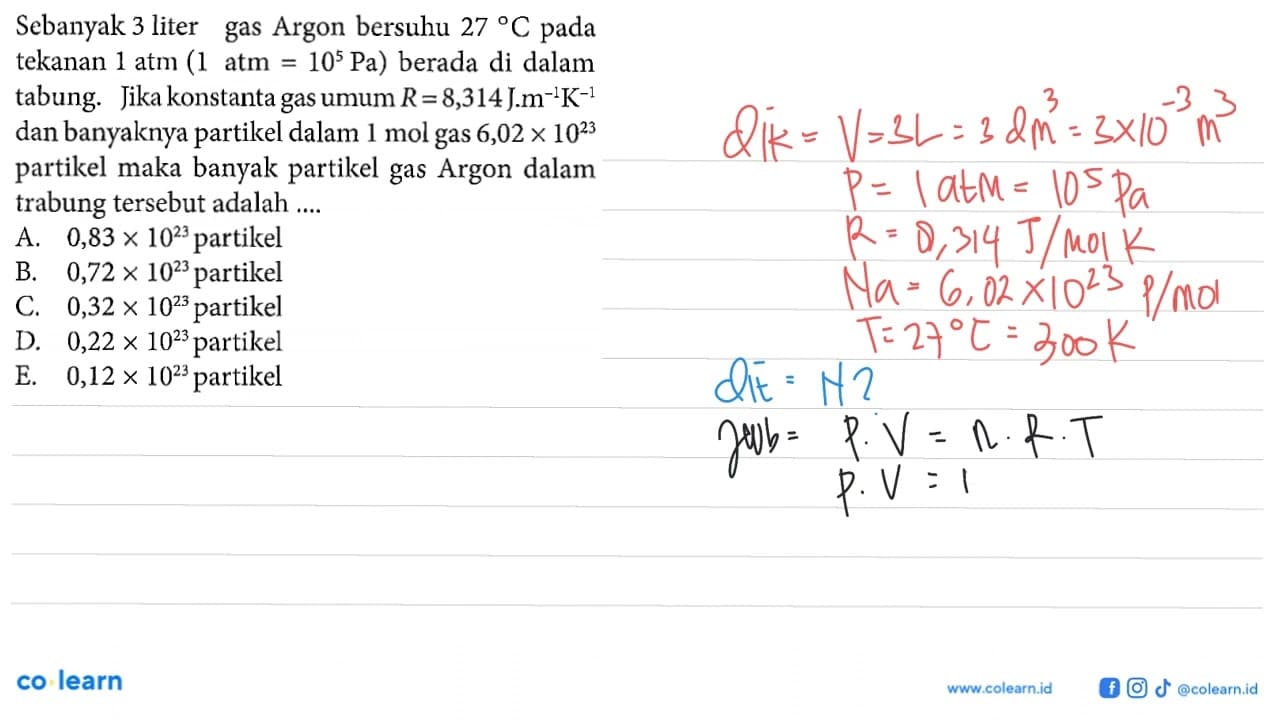 Sebanyak 3 liter gas Argon bersuhu 27 °C pada
tekanan 1 atm (1 atm = 10⁵ Pa) berada di dalam
tabung. Jika konstanta gas umum R = 8,314 J.m⁻¹K⁻¹
dan banyaknya partikel dalam 1 mol gas 6,02 × 10²³
partikel maka banyak partikel gas Argon dalam
trabung tersebut adalah ....
A. 0,83 × 10²³ partikel
B. 0,72 × 10²³ partikel
C. 0,32 × 10²³ partikel
D. 0,22 × 10²³ partikel
E. 0,12 × 10²³ partikel
Dik = V = 3L = 3 dm³ = 3×10⁻³ m³
P = 1 atm = 10⁵ Pa
R = 8,314 J/mol K
Na = 6,02 × 10²³ P/mol
T = 27°C = 300 K
dit = N?
jwb = P. V = n. R. T
P. V = 1
co learn
www.colearn.id
@colearn.id